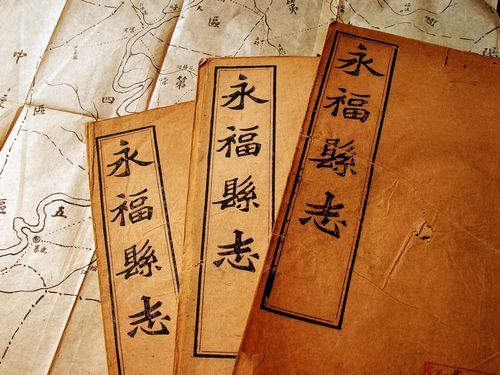 永福縣志
永福縣志
永福縣志
中
區
第
四
區
五
區